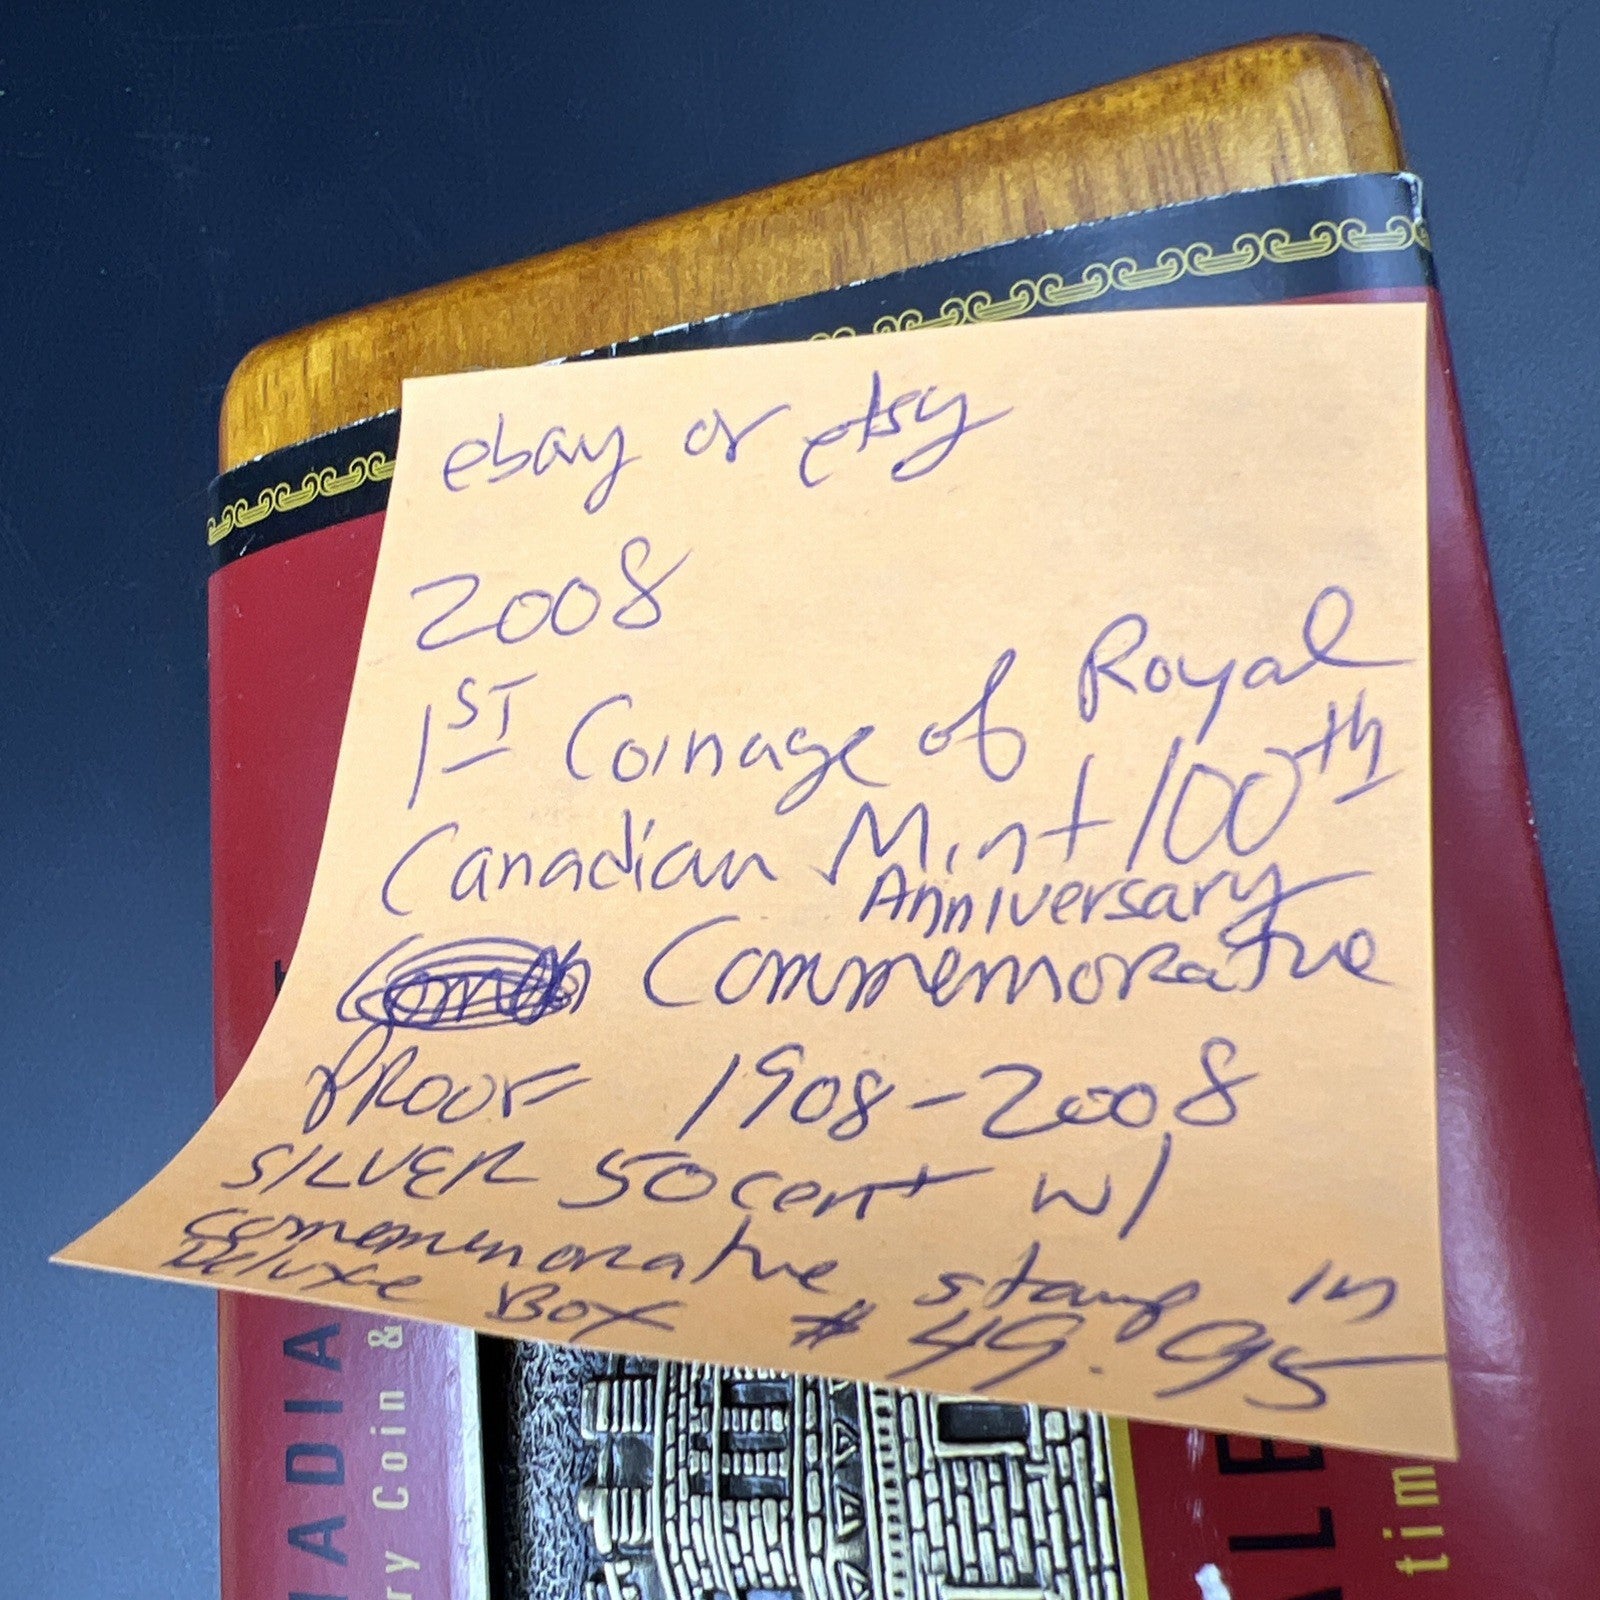 ebay or etsy
2008
1ST Coinage of Royal
Canadian Mint 100th
Anniversary
Commemorative
PROOF 1908-2008
SILVER 50 cent w/
commemorative stamp in
Deluxe Box # 49.95
ADIA
ry Coin &
ALE
tim